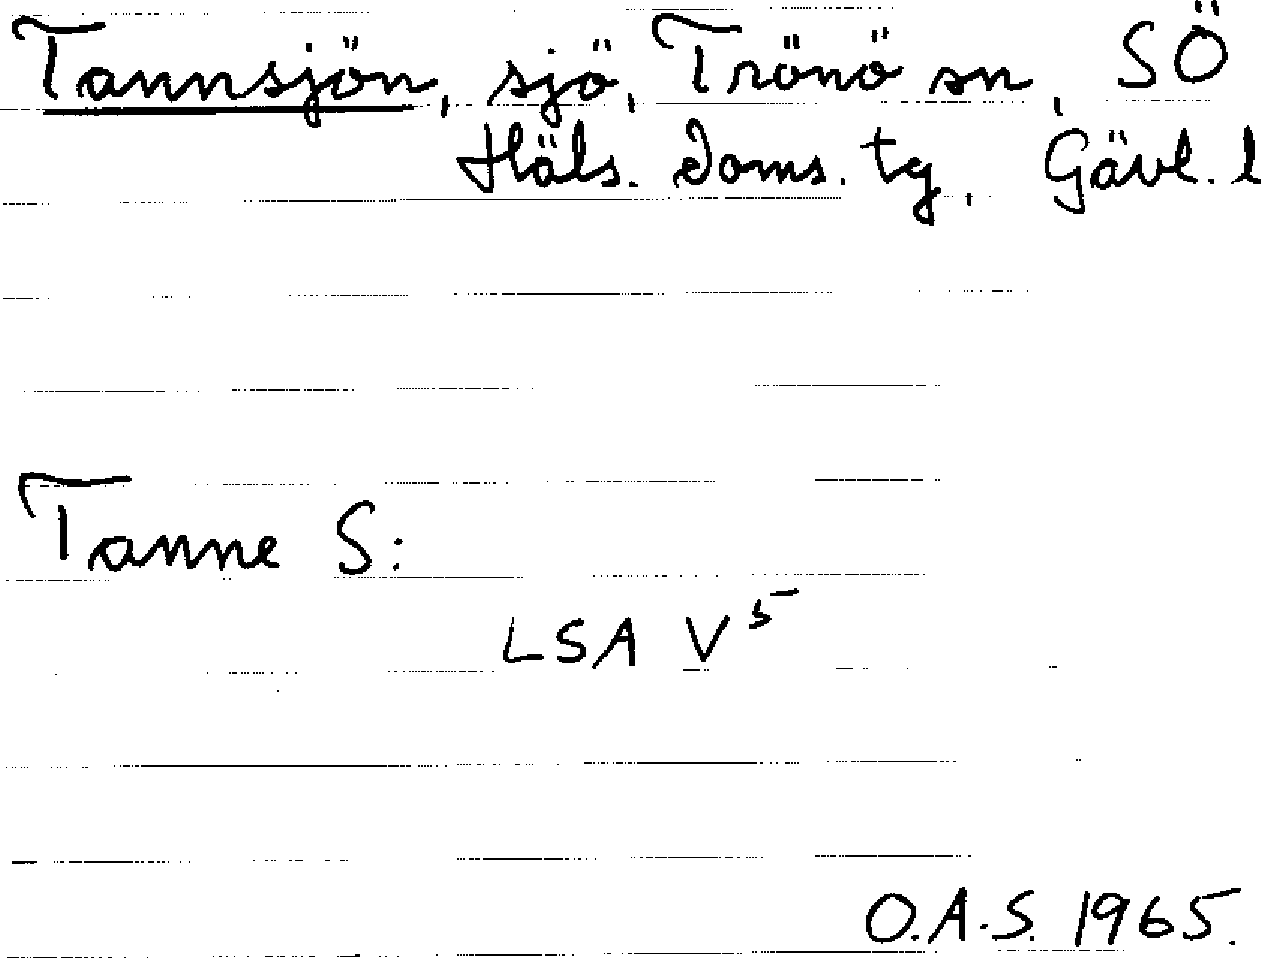 Tannsjön, sjö, Trönö sn, SÖ
Häls. doms. tg, Gävl. l
Tanne S:
LSA V⁵
O.A.S. 1965.